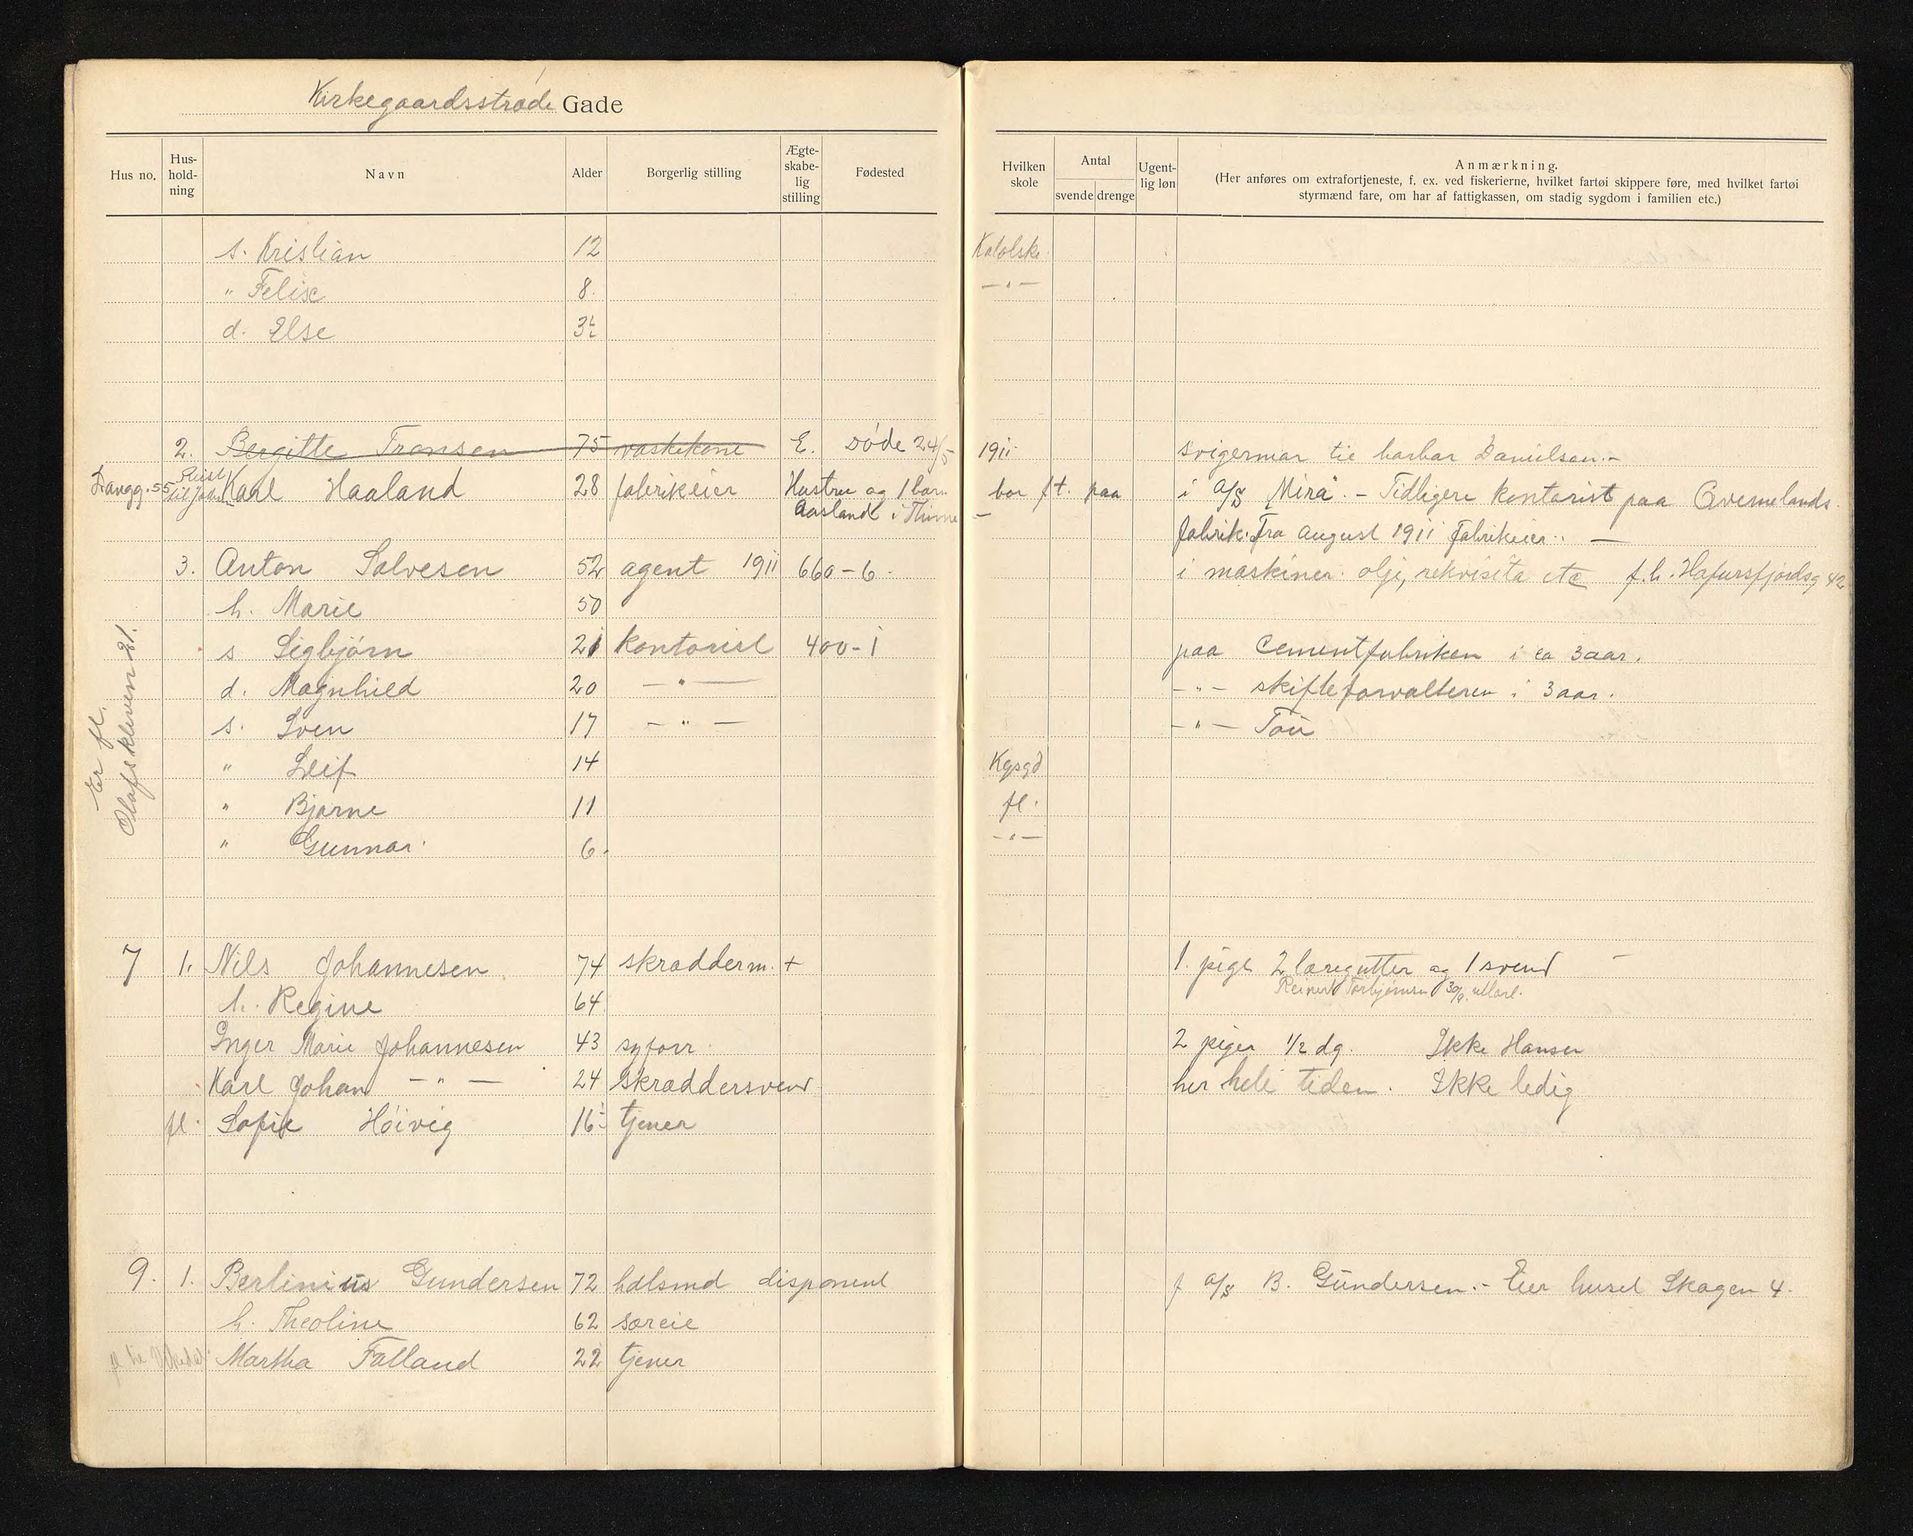 Kirkegaardsstræde Gade
Hus no. Hus-hold-ning Navn Alder Borgerlig stilling Ægte-skabe-lig stilling Fødested Hvilken skole Antal svende drenge Ugent-lig løn Anmærkning.
(Her anføres om extrafortjeneste, f. ex. ved fiskerierne, hvilket fartøi skippere føre, med hvilket fartøi
styrmænd fare, om har af fattigkassen, om stadig sygdom i familien etc.)
s. Kristian 12 Katolske
" Felix 8. - " -
d. Else 3½
2. Bergitte Tronsen 75 vaskekone E. Døde 24/5 1911 Svigermor til barbar Danielsen.-
Langg. 55 Reist til Karl Haaland 28 fabrikeier Hustru og 1 barn bor f t. paa i A/S "Mira". - Tidligere kontorist paa Qvernelands
Aasland i Thime - fabrik. Fra august 1911 fabrikeier. -
3. Anton Salvesen 52 agent 1911 660-6. i maskiner. olje, rekvisita etc f.h. Hafursfjordsg 42
h. Marie 50
s Sigbjørn 21 kontorist 400-1 paa Cementfabriken i ca 3 aar.
d. Magnhild 20 - " - - " - skifteforvalteren i 3 aar.
s. Sven 17 - " - - " - Tou
" Leif 14 Kgsgd
" Bjarne 11 fl.
" Gunnar. 6. - " -
Er fl.
Olafskleven 21.
7 1. Nils Johannesen 74 skrædderm. + 1 pige 2 læregutter og 1 svend -
Reinert Torbjørnsen
h. Regine 64
Inger Marie Johannesen 43 syforr. 2 piger 1/2 dg. Ikke Hansen
Karl Johan - " - 24 skræddersvend her hele tiden. Ikke ledig
fl. Sofie Høivig 16½ tjener
9. 1. Berlinius Gundersen 72 hdlsmd disponent f A/S B. Gundersen.- Eier huset Skagen 4.
h. Theoline 62 særeie
Martha Falland 22 tjener